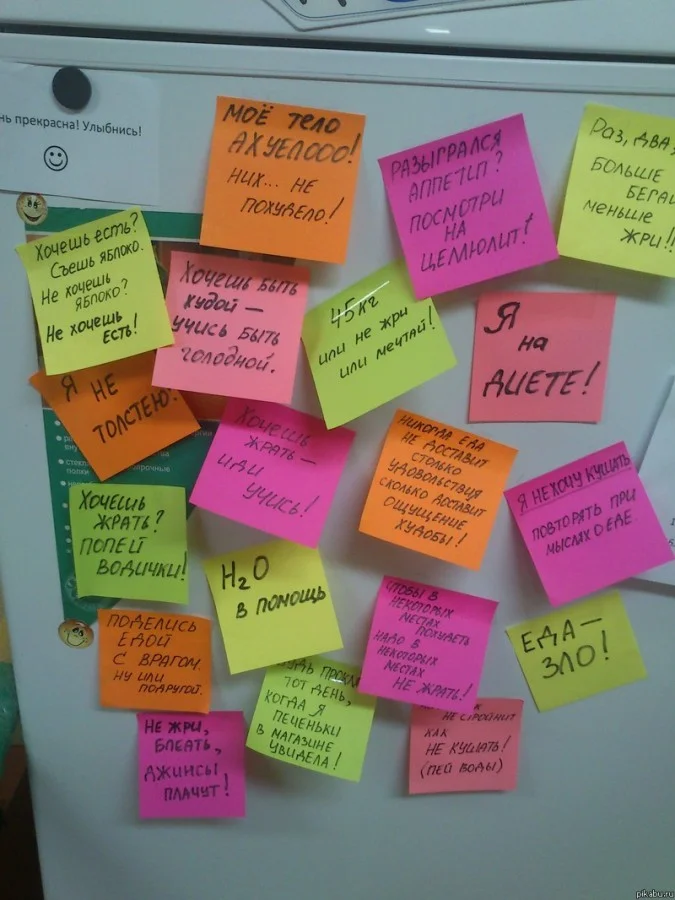 нь прекрасна! Улыбнись!
МОЁ ТЕЛО
АХУЕЛООО!
НИХ... НЕ
ПОХУДЕЛО!
РАЗЫГРАЛСЯ
АППЕТИТ?
ПОСМОТРИ
НА
ЦЕЛЮЛИТ!
Раз, два,
БОЛЬШЕ
БЕГАЙ
МЕНЬШЕ
ЖРИ!!
Хочешь есть?
Съешь яблоко.
Не хочешь
яблоко?
Не хочешь
есть!
ХОЧЕШЬ БЫТЬ
ХУДОЙ —
УЧИСЬ БЫТЬ
ГОЛОДНОЙ.
45 кг
или не жри
или мечтай!
Я
на
ДИЕТЕ!
Я НЕ
ТОЛСТЕЮ!
ХОЧЕШЬ
ЖРАТЬ —
ИДИ
УЧИСЬ!
НИКОГДА ЕДА
НЕ ДОСТАВИТ
СТОЛЬКО
УДОВОЛЬСТВИЯ
СКОЛЬКО ДОСТАВИТ
ОЩУЩЕНИЕ
ХУДОБЫ!
Я НЕ ХОЧУ КУШАТЬ
ПОВТОРЯТЬ ПРИ
МЫСЛЯХ О ЕДЕ
ХОЧЕШЬ
ЖРАТЬ?
ПОПЕЙ
ВОДИЧКИ!
H2O
В ПОМОЩЬ
ПОДЕЛИСЬ
ЕДОЙ
С ВРАГОМ.
НУ ИЛИ
ПОДРУГОЙ.
ТОТ ДЕНЬ,
КОГДА Я
ПЕЧЕНЬКИ
В МАГАЗИНЕ
УВИДЕЛА!
ЧТОБЫ В
НЕКОТОРЫХ
МЕСТАХ
ПОХУДЕТЬ
НАДО В
НЕКОТОРЫХ
МЕСТАХ
НЕ ЖРАТЬ!
ЕДА —
ЗЛО!
НЕ ЖРИ,
БЛЕАТЬ,
ДЖИНСЫ
ПЛАЧУТ!
НЕ СТРОЙНИТ
КАК
НЕ КУШАТЬ!
(ПЕЙ ВОДЫ)
pikabu.ru